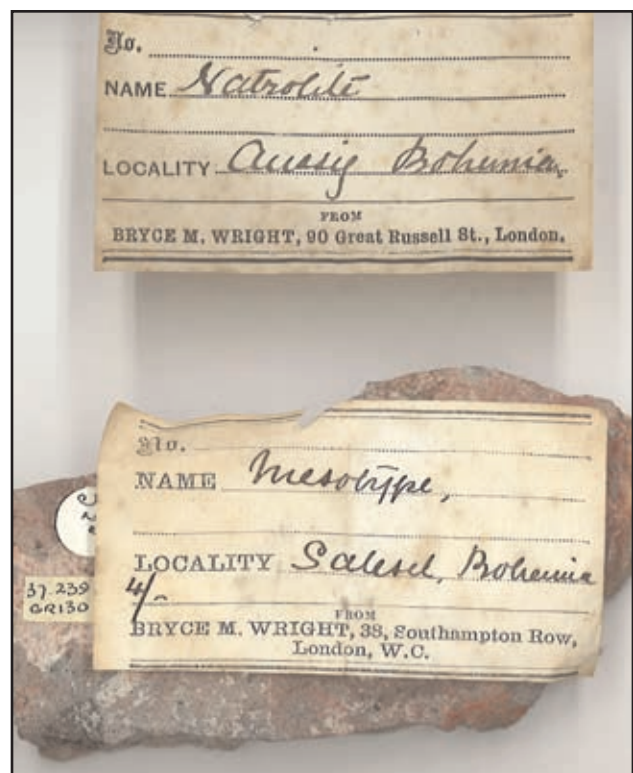 No.
NAME Natrolite
LOCALITY Aussig Bohemia,
FROM
BRYCE M. WRIGHT, 90 Great Russell St., London.
No.
NAME Mesotype,
LOCALITY Salesel, Bohemia
4/-
FROM
BRYCE M. WRIGHT, 38, Southampton Row,
London, W.C.
37.239
GR130